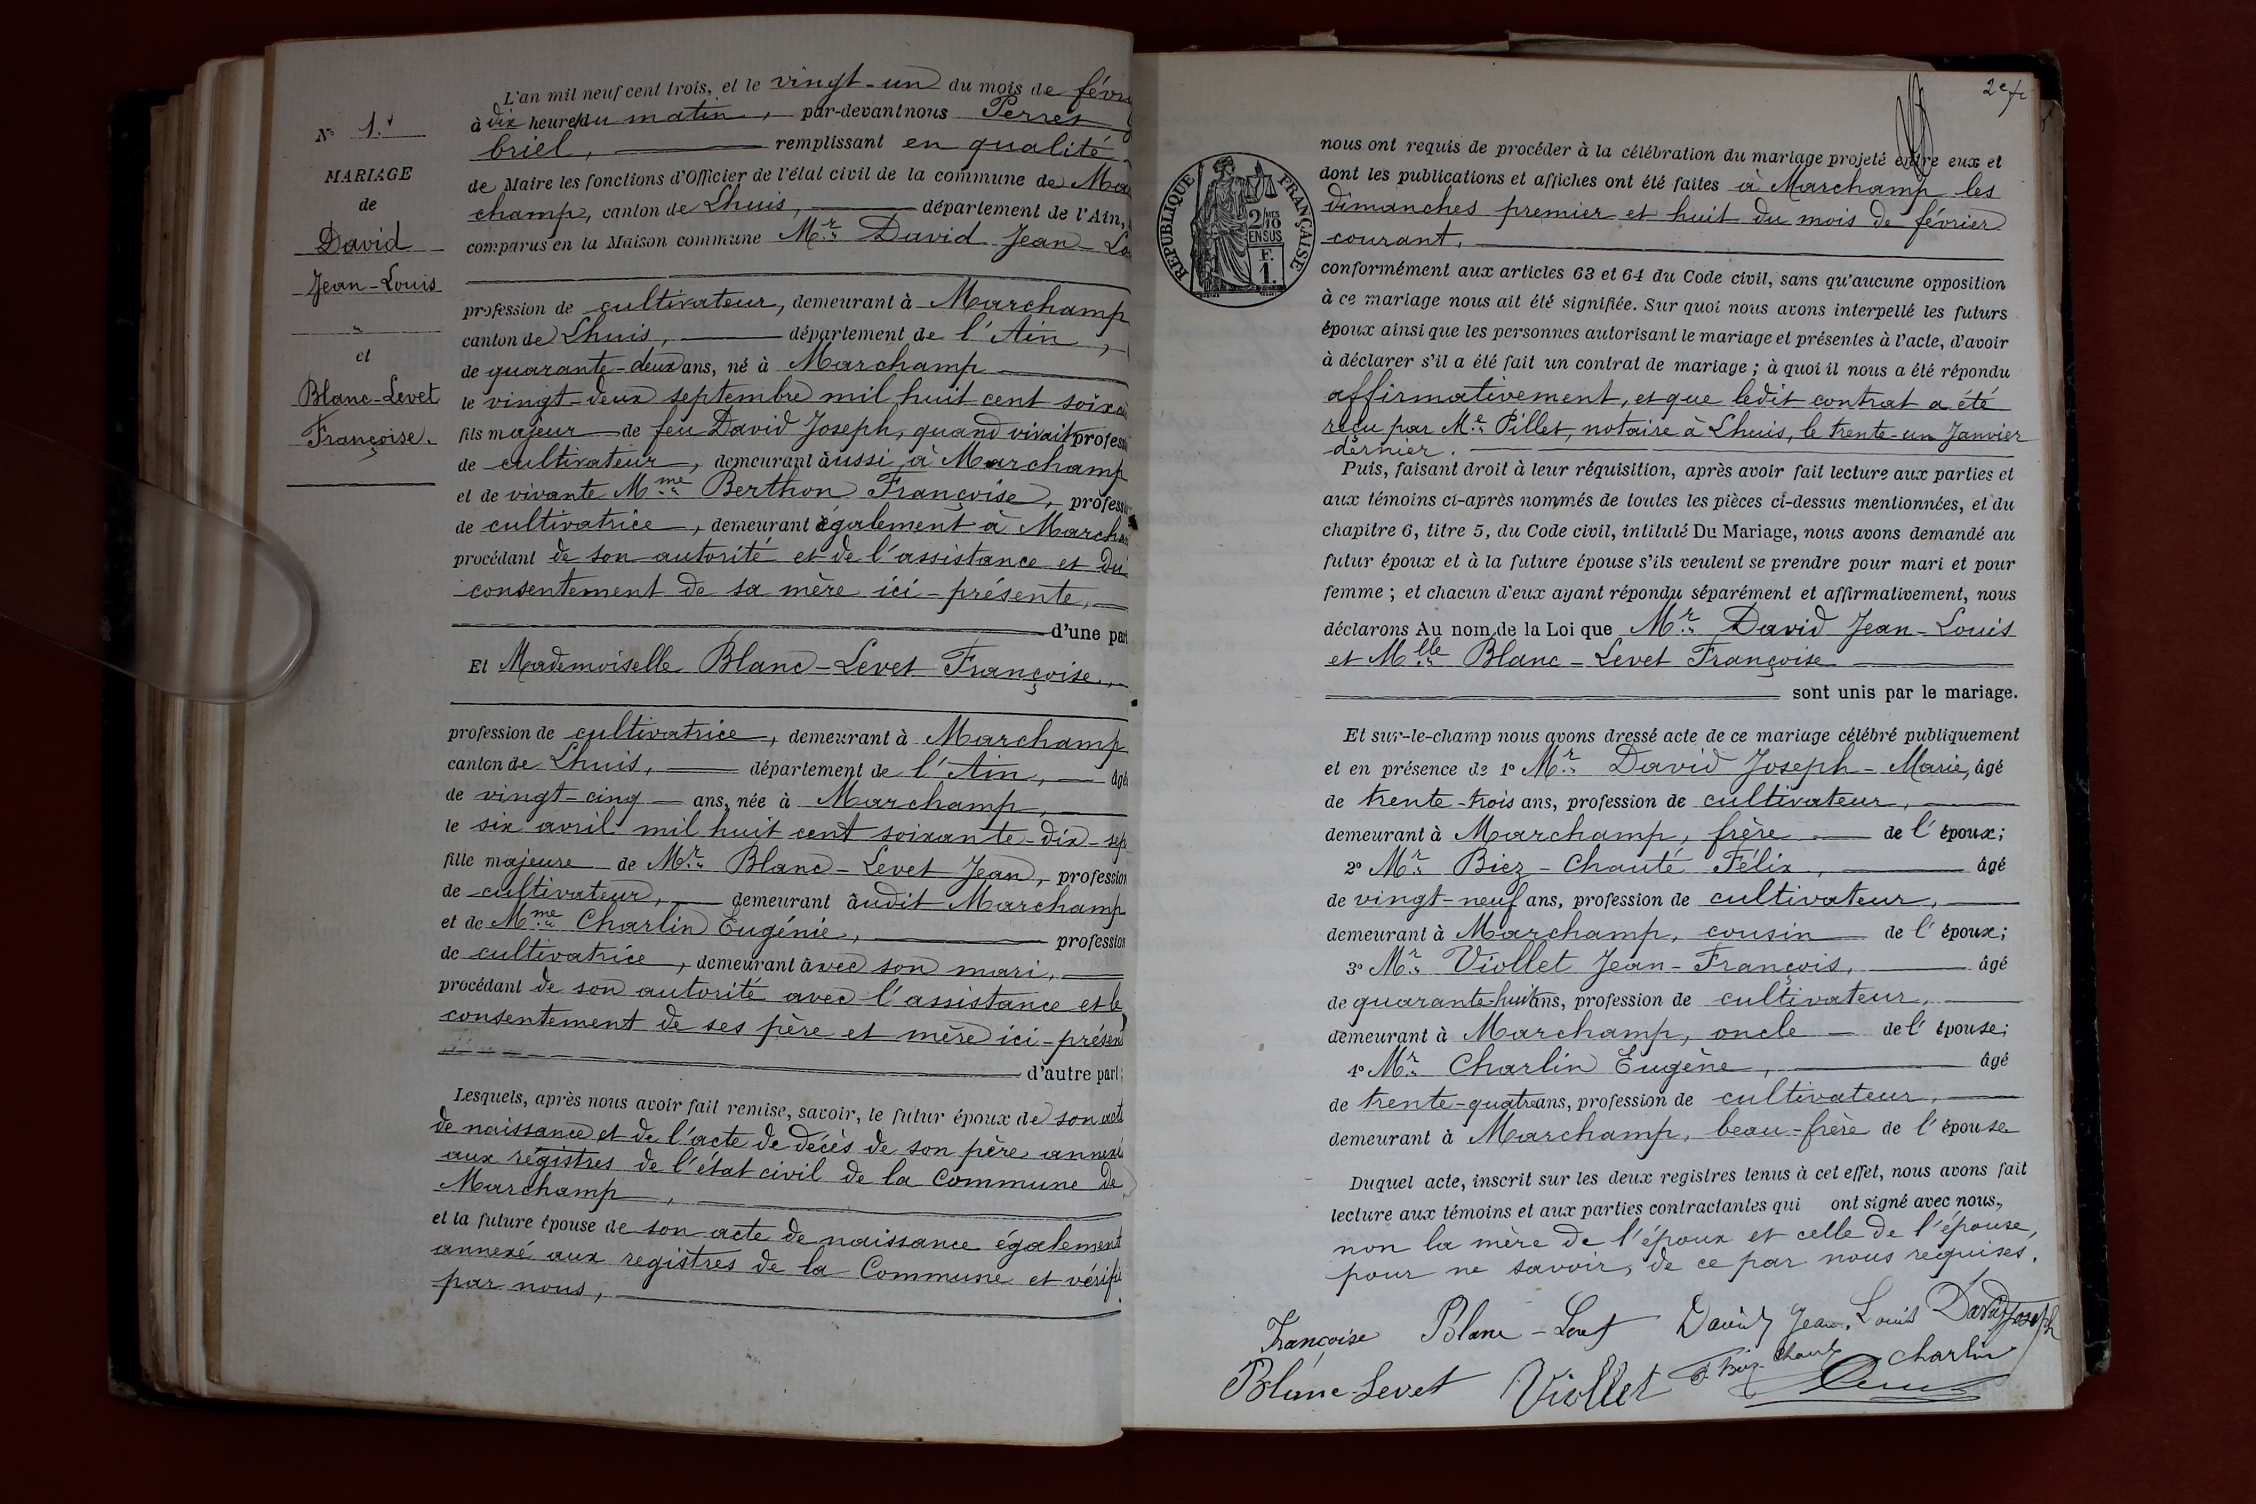 N° 1.
MARIAGE
de
David
Jean-Louis
"
et
Blanc-Levet
Françoise.
L'an mil neuf cent trois, et le vingt-un du mois de févr
à dix heures du matin, par-devant nous Perret
briel, remplissant en qualité
de Maire les fonctions d'Officier de l'état civil de la commune de Mar
champ, canton de Lhuis, département de l'Ain,
comparus en la Maison commune Mr David Jean-Lo
profession de cultivateur, demeurant à Marchamp
canton de Lhuis, département de l'Ain,
de quarante-deux ans, né à Marchamp
le vingt-deux septembre mil huit cent soixan
fils majeur de feu David Joseph, quand vivait profess
de cultivateur, demeurant aussi à Marchamp
et de vivante Mme Berthon Françoise, profess
de cultivatrice, demeurant également à Marcha
procédant de son autorité et de l'assistance et du
consentement de sa mère ici-présente,
d'une part
Et Mademoiselle Blanc-Levet Françoise,
profession de cultivatrice, demeurant à Marchamp
canton de Lhuis, département de l'Ain, âgé
de vingt-cinq ans, née à Marchamp,
le six avril mil huit cent soixante-dix-sep
fille majeure de Mr Blanc-Levet Jean, profession
de cultivateur, demeurant audit Marchamp
et de Mme Charlin Eugénie, profession
de cultivatrice, demeurant avec son mari,
procédant de son autorité avec l'assistance et le
consentement de ses père et mère ici-présen
d'autre part;
Lesquels, après nous avoir fait remise, savoir, le futur époux de son acte
de naissance et de l'acte de décès de son père annexé
aux registres de l'état civil de la Commune de
Marchamp,
et la future épouse de son acte de naissance également
annexé aux registres de la Commune et vérifié
par nous,
REPUBLIQUE FRANÇAISE
2/10
EN SUS
F.
1.
nous ont requis de procéder à la célébration du mariage projeté entre eux et
dont les publications et affiches ont été faites à Marchamp les
dimanches premier et huit du mois de février
courant,
conformément aux articles 63 et 64 du Code civil, sans qu'aucune opposition
à ce mariage nous ait été signifiée. Sur quoi nous avons interpellé les futurs
époux ainsi que les personnes autorisant le mariage et présentes à l'acte, d'avoir
à déclarer s'il a été fait un contrat de mariage; à quoi il nous a été répondu
affirmativement, et que ledit contrat a été
reçu par Me Pillet, notaire à Lhuis, le trente-un Janvier
dernier.
Puis, faisant droit à leur réquisition, après avoir fait lecture aux parties et
aux témoins ci-après nommés de toutes les pièces ci-dessus mentionnées, et du
chapitre 6, titre 5, du Code civil, intitulé Du Mariage, nous avons demandé au
futur époux et à la future épouse s'ils veulent se prendre pour mari et pour
femme; et chacun d'eux ayant répondu séparément et affirmativement, nous
déclarons Au nom de la Loi que Mr David Jean-Louis
et Mlle Blanc-Levet Françoise
sont unis par le mariage.
Et sur-le-champ nous avons dressé acte de ce mariage célébré publiquement
et en présence de 1° Mr David Joseph-Marie, âgé
de trente-trois ans, profession de cultivateur,
demeurant à Marchamp, frère de l'époux;
2° Mr Biez-Chauté Félix, âgé
de vingt-neuf ans, profession de cultivateur,
demeurant à Marchamp, cousin de l'époux;
3° Mr Viollet Jean-François, âgé
de quarante-huit ans, profession de cultivateur,
demeurant à Marchamp, oncle de l'épouse;
4° Mr Charlin Eugène, âgé
de trente-quatre ans, profession de cultivateur,
demeurant à Marchamp, beau-frère de l'épouse
Duquel acte, inscrit sur les deux registres tenus à cet effet, nous avons fait
lecture aux témoins et aux parties contractantes qui ont signé avec nous,
non la mère de l'époux et celle de l'épouse,
pour ne savoir, de ce par nous requises.
Françoise Blanc-Levet David Jean Louis David Joseph
Blanc-Levet Viollet F. Biez-Chauté Charlin